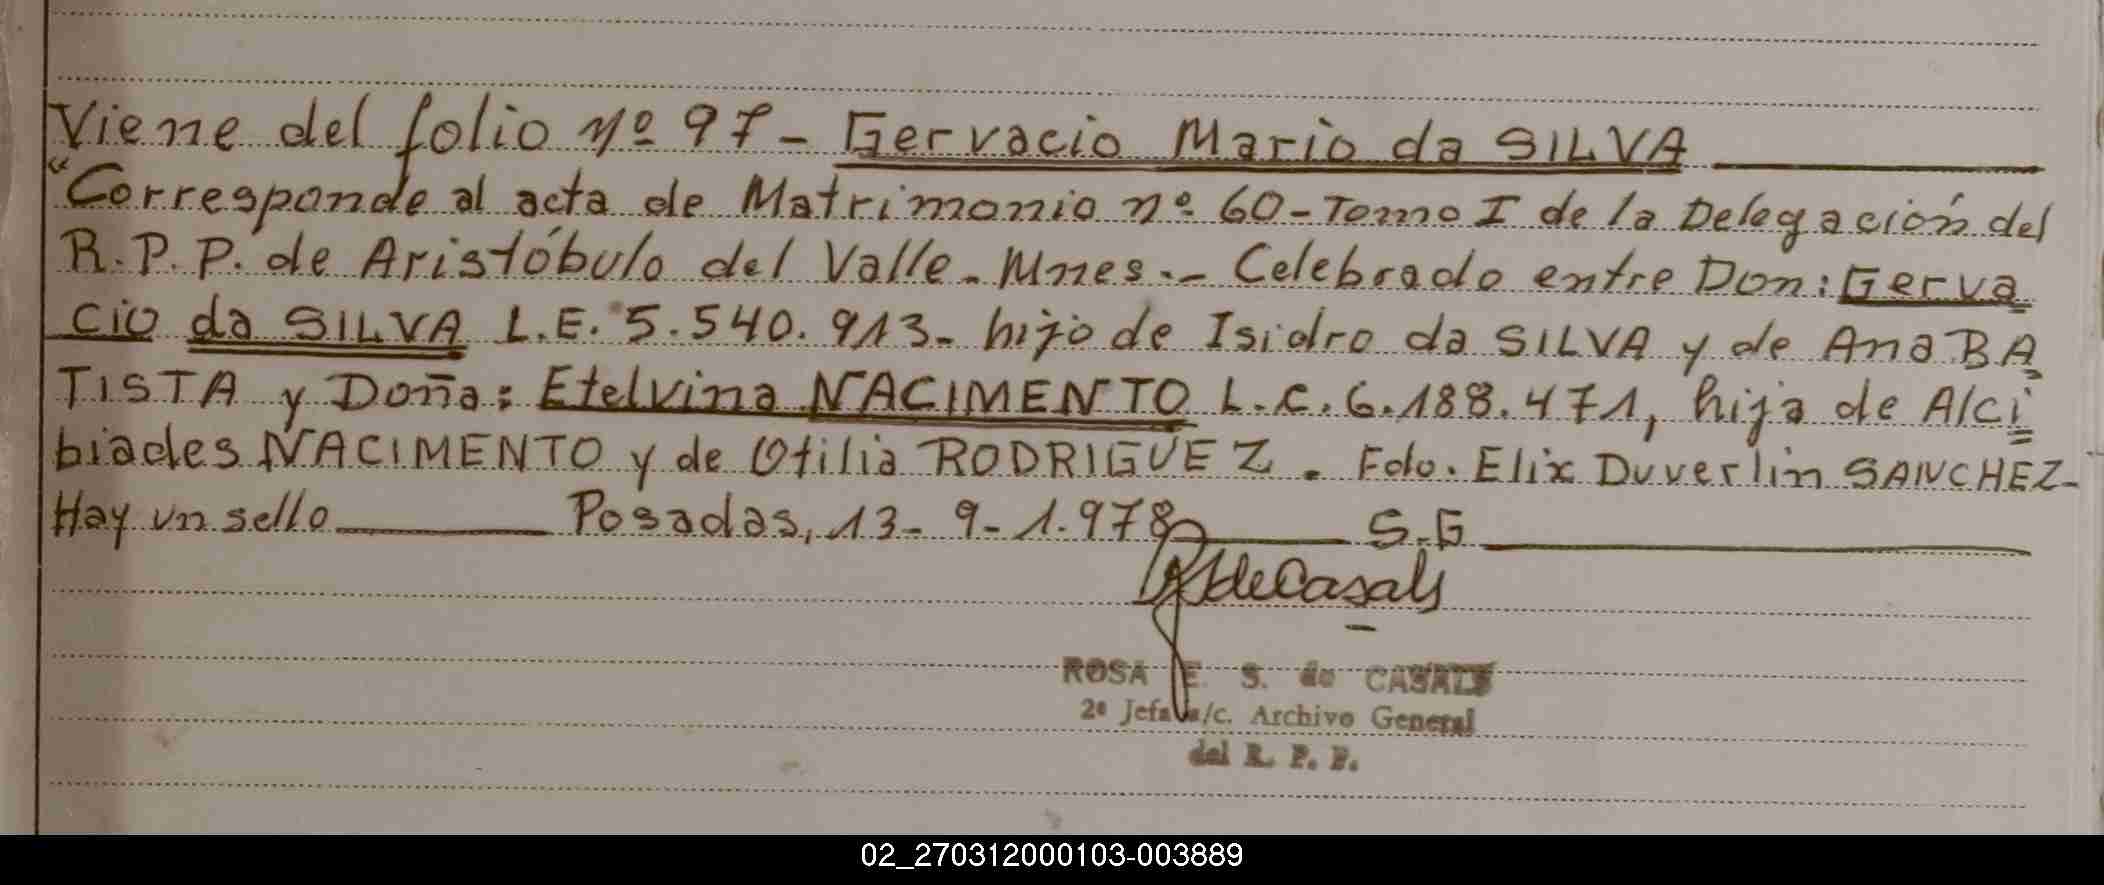 Viene del folio nº 97 - Gervacio Mario da SILVA
"Corresponde al acta de Matrimonio nº 60 - Tomo I de la Delegación del
R.P.P. de Aristóbulo del Valle - Mnes.- Celebrado entre Don: Gerva
cio da SILVA L.E. 5.540.913- hijo de Isidro da SILVA y de Ana BA
TISTA y Doña: Etelvina NACIMENTO L.C. 6.188.471, hija de Alci
biades NACIMENTO y de Otilia RODRIGUEZ. Fdo. Elix Duverlin SANCHEZ-
Hay un sello Posadas, 13-9-1.978 S.G
de Casals
ROSA E. S. de CASALS
2º Jefa a/c. Archivo General
del R. P. P.
02_270312000103-003889